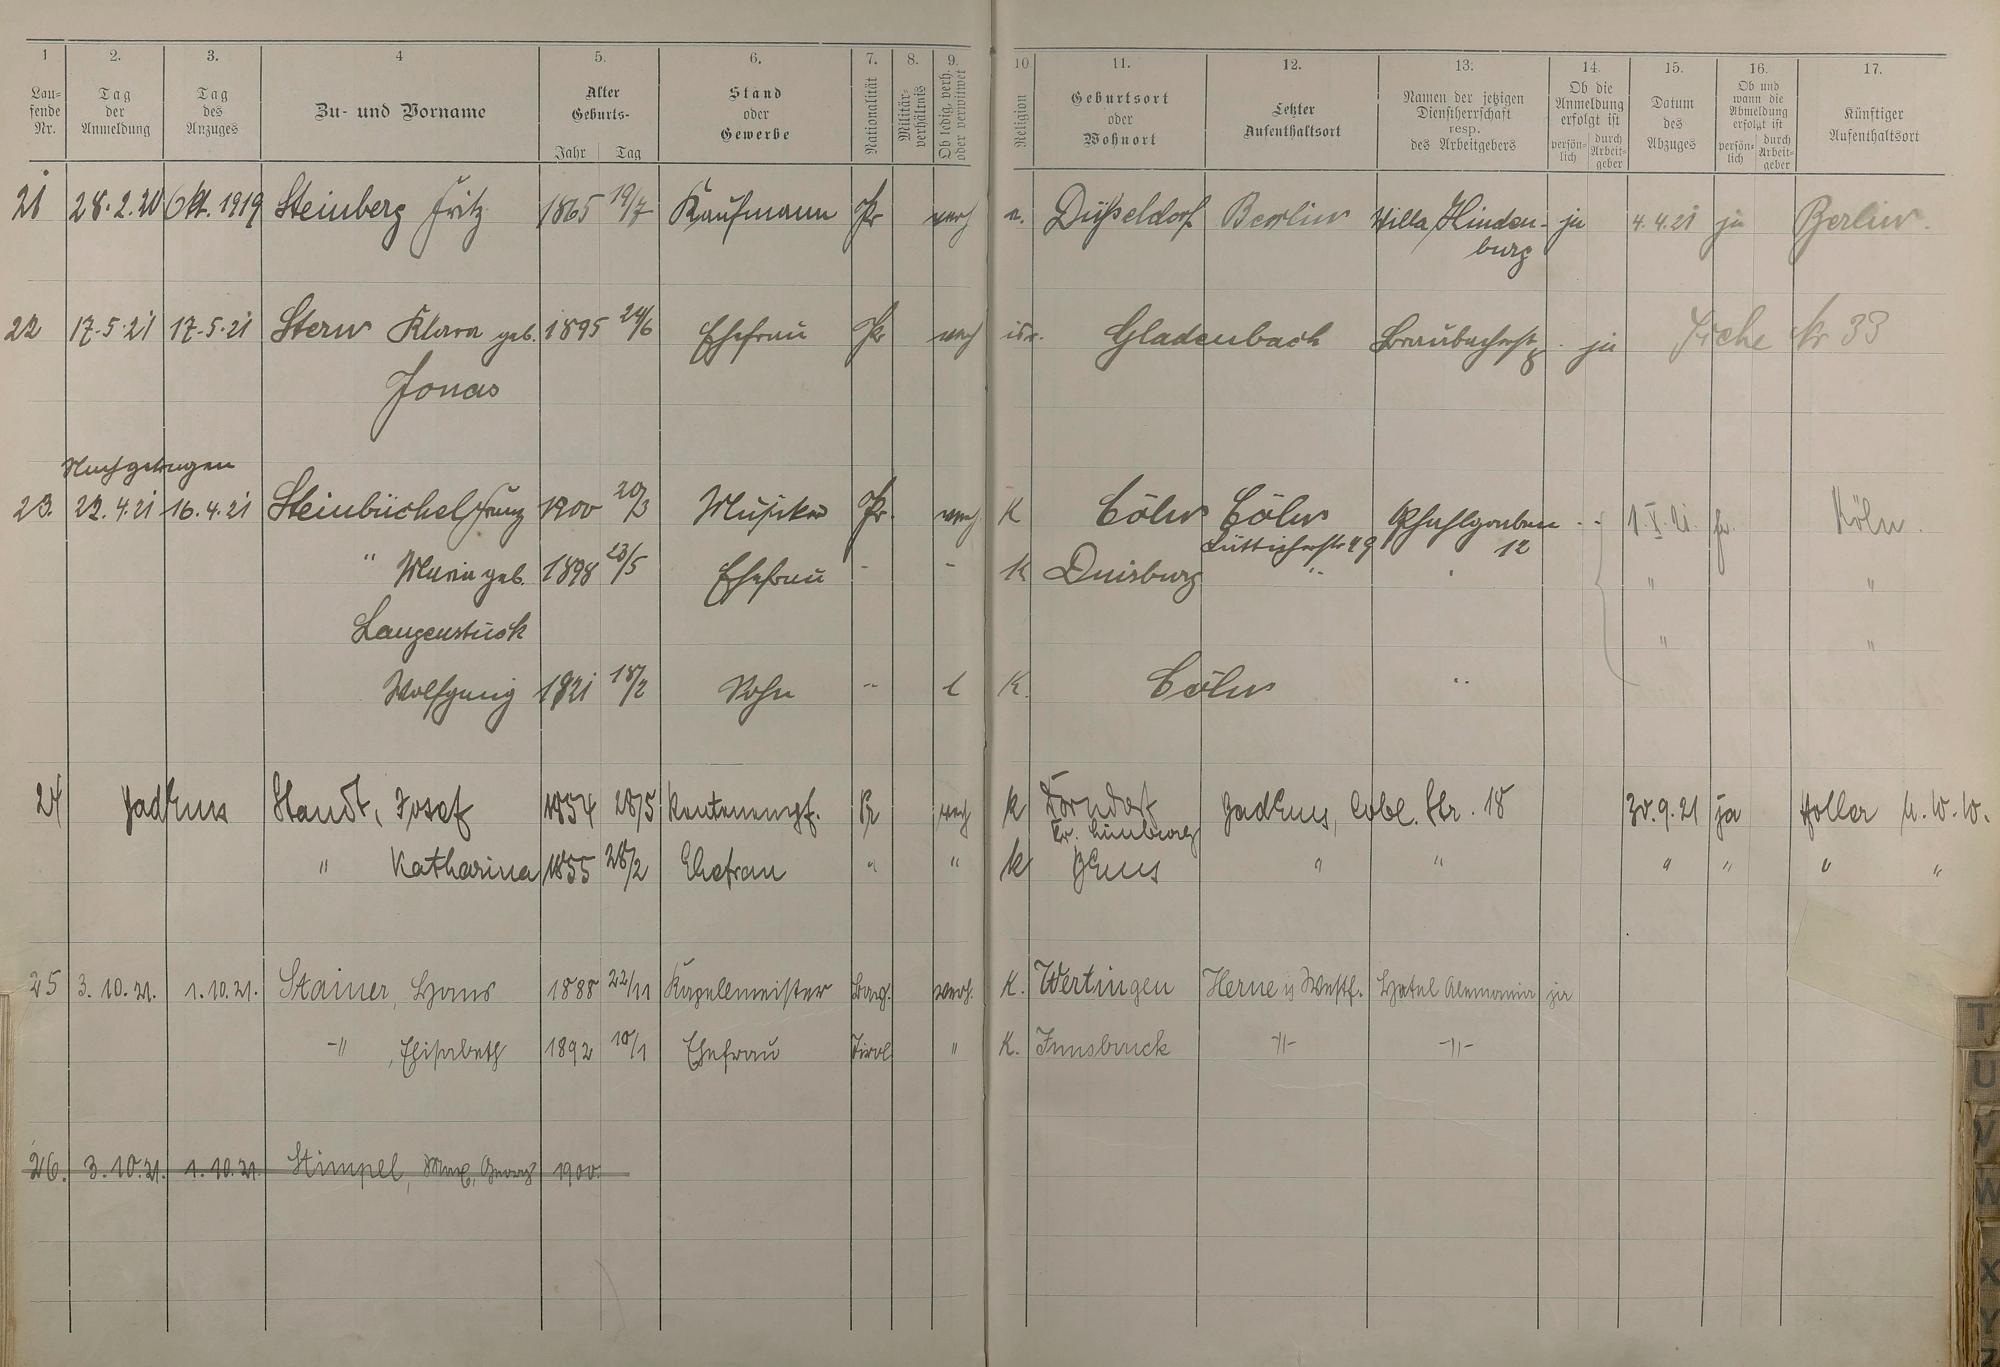 1 2. 3. 4 5. 6. 7. 8. 9. 10. 11. 12. 13. 14. 15. 16. 17.
Lau- fende Nr. Tag der Anmeldung Tag des Anzuges Zu- und Vorname Alter Geburts- Jahr Tag Stand oder Gewerbe Nationalität Militär- verhältnis Ob ledig, verh. oder verwitwet Religion Geburtsort oder Wohnort Letzter Aufenthaltsort Namen der jetzigen Dienstherrschaft resp. des Arbeitgebers Ob die Anmeldung erfolgt ist persön- lich durch Arbeit- geber Datum des Abzuges Ob und wann die Abmeldung erfolgt ist persön- lich durch Arbeit- geber Künftiger Aufenthaltsort
21 28.2.20 Okt. 1919 Steinberg Fritz 1865 19/7 Kaufmann Pr verh Düsseldorf Berlin Villa Hinden- ja 4.4.21 ja Berlin.
burg
22 17.5.21 17.5.21 Stern Klara geb. 1895 24/6 Ehefrau Pr verh isr. Gladenbach ja Siehe Nr 33
Jonas
Nachgetragen
23. 22.4.21 16.4.21 Steinbüchel Franz 1900 20/3 Musiker Pr. verh. K Cöln Cöln Pfahlgraben 1.X.21. ja Köln.
Lütticherstr 49 12
" Maria geb. 1898 23/5 Ehefrau - - K Duisburg " " " "
Langenstück " "
Wolfgang 1921 18/2 Sohn " l K. Cöln "
24 BadEms Staudt, Josef 1854 28/5 Rentenempf. Pr verh k Dorndorf BadEms, Cobl. Str. 18 30.9.21 ja Holler U.W.W.
Kr. Limburg
" Katharina 1855 28/2 Ehefrau " " k BEms " " " " " "
25 3.10.21. 1.10.21. Stainer, Hans 1888 22/11 Kapellmeister verh. K. Wertingen Herne i/ Westf. Hotel Alemannia ja
-"- , Elisabeth 1892 10/1 Ehefrau Tirol " K. Innsbruck -"- -"-
26. 3.10.21. 1.10.21. Stimpel, Max, Georg 1900.
T
U
V
W
X
Y
Z